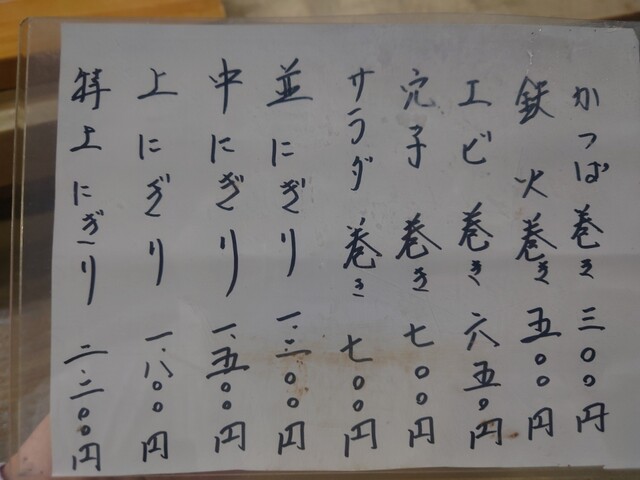 かっぱ巻き 三〇〇円
鉄火巻き 五〇〇円
エビ巻き 六五〇円
穴子巻き 七〇〇円
サラダ巻き 七〇〇円
並にぎり 一、三〇〇円
中にぎり 一、五〇〇円
上にぎり 一、八〇〇円
特上にぎり 二、三〇〇円